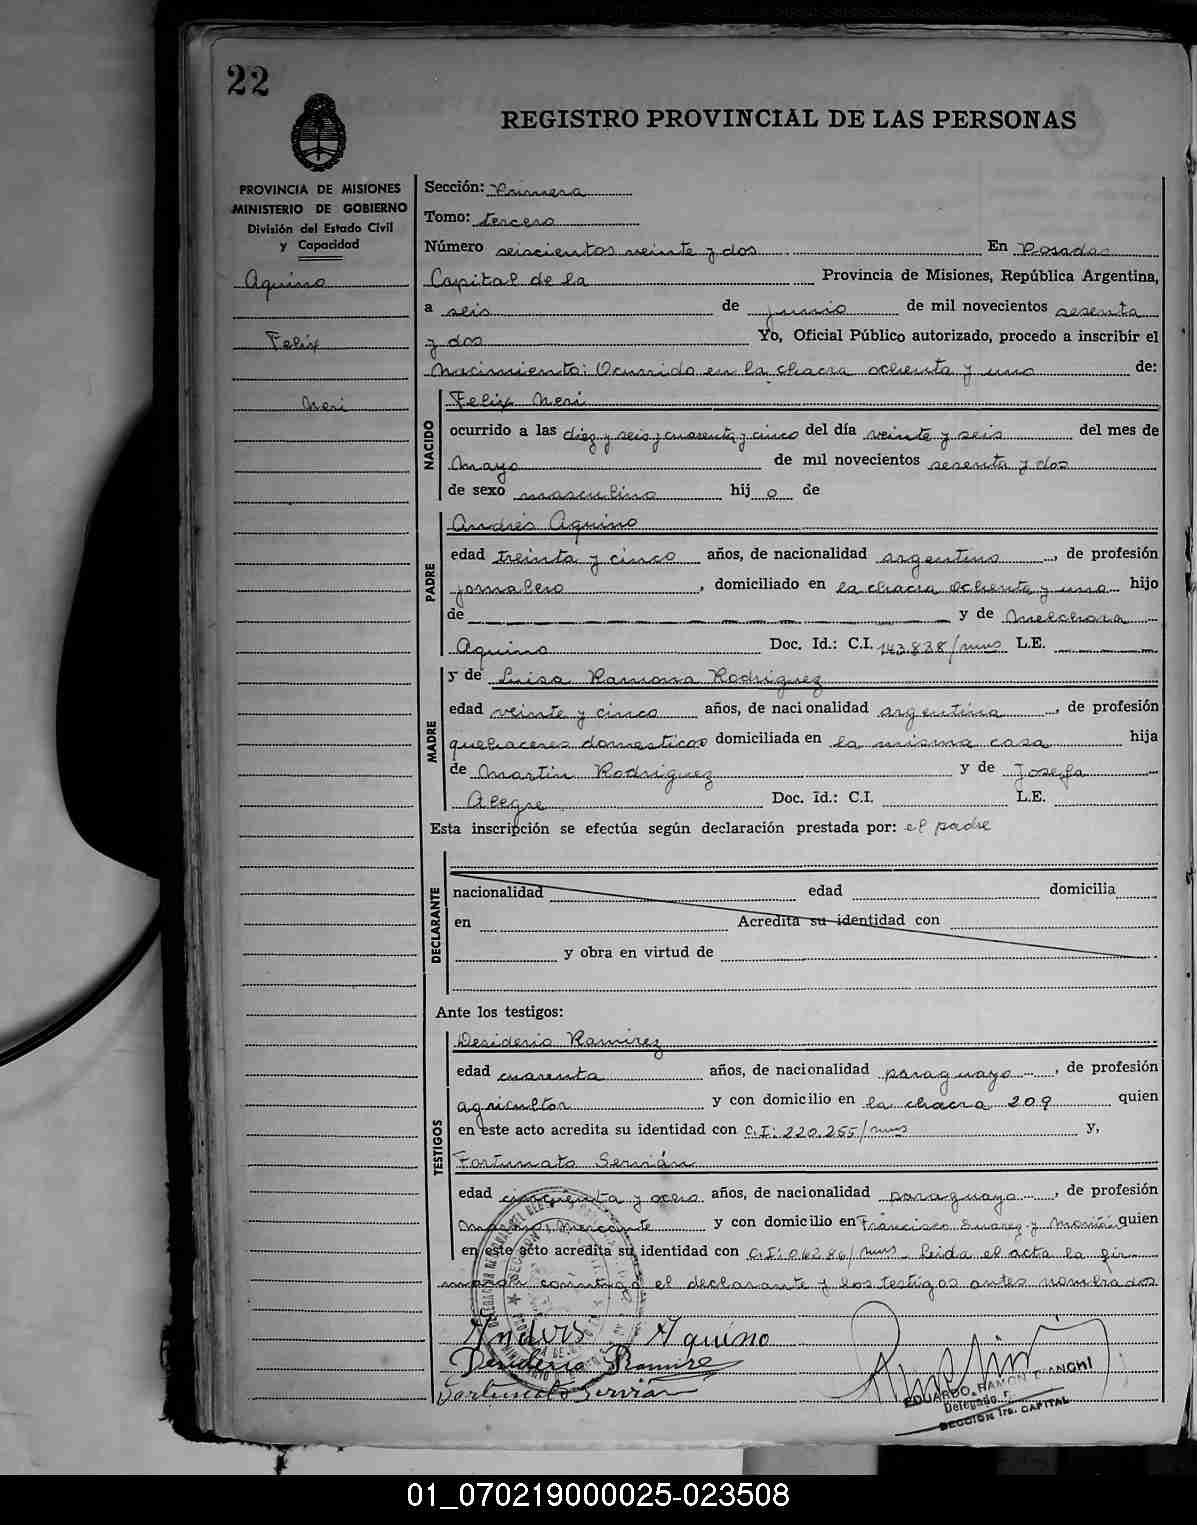 22
REGISTRO PROVINCIAL DE LAS PERSONAS
PROVINCIA DE MISIONES
MINISTERIO DE GOBIERNO
División del Estado Civil
y Capacidad
Aquino
Felix
Neri
Sección: Primera
Tomo: tercero
Número seiscientos veinte y dos En Posadas
Capital de la Provincia de Misiones, República Argentina,
a seis de junio de mil novecientos sesenta
y dos Yo, Oficial Público autorizado, procedo a inscribir el
Nacimiento: Ocurrido en la chacra ochenta y uno de:
NACIDO
Felix Neri
ocurrido a las diez y seis y cuarenta y cinco del día veinte y seis del mes de
Mayo de mil novecientos sesenta y dos
de sexo masculino hij o de
PADRE
Andrés Aquino
edad treinta y cinco años, de nacionalidad argentino, de profesión
jornalero, domiciliado en la chacra ochenta y uno hijo
de y de Melchora
Aquino Doc. Id.: C.I. 143.838/mnes L.E.
MADRE
y de Luisa Ramona Rodriguez
edad veinte y cinco años, de nacionalidad argentina, de profesión
quehaceres domesticos domiciliada en la misma casa hija
de Martin Rodriguez y de Josefa
Alegre Doc. Id.: C.I. L.E.
Esta inscripción se efectúa según declaración prestada por: el padre
DECLARANTE
nacionalidad edad domicilia
en Acredita su identidad con
y obra en virtud de
Ante los testigos:
TESTIGOS
Desiderio Ramirez
edad cuarenta años, de nacionalidad paraguayo, de profesión
agricultor y con domicilio en la chacra 209 quien
en este acto acredita su identidad con C.I: 220.255/mnes y,
Fortunato Servián
edad cincuenta y ocho años, de nacionalidad paraguayo, de profesión
Marino Mercante y con domicilio en Francisco Suarez y quien
en este acto acredita su identidad con C.I: 06286/mnes. Leida el acta la fir-
maron conmigo el declarante y los testigos antes nombrados
Andres Aquino
Desiderio Ramire
Fortunato Servián
EDUARDO RAMON BIANCHI
Delegado
SECCION 1ra. CAPITAL
01_070219000025-023508